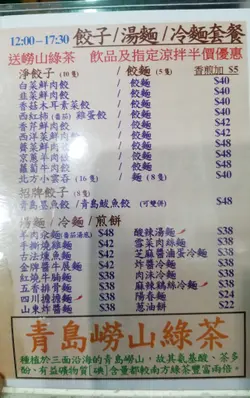 12:00-17:30 餃子/湯麵/冷麵套餐
送嶗山綠茶 飲品及指定涼拌半價優惠
淨餃子(10隻) / 餃麵(5隻) 香煎加 $5
白菜鮮肉餃 / 餃麵 $40
韭菜鮮肉餃 / 餃麵 $40
香菇木耳素菜餃 / 餃麵 $40
西紅柿(番茄)雞蛋餃 / 餃麵 $40
香芹鮮肉餃 / 餃麵 $42
西洋菜鮮肉餃 / 餃麵 $42
薺菜鮮肉餃 / 餃麵 $48
京蔥羊肉餃 / 餃麵 $48
蘿蔔牛肉餃 / 餃麵 $48
北方小雲吞(16隻) / 麵(8隻) $40
招牌餃子(8隻)
青島墨魚餃/青島鮁魚餃(可雙併) $48
湯麵/冷麵/煎餅
羊肉汆麵(番茄湯底) $48 酸辣湯麵 $38
手撕燒雞麵 $42 雪菜肉絲麵 $38
古法燻魚麵 $42 芝麻醬滷蛋冷麵 $38
金牌醬牛展麵 $42 炸醬冷麵 $38
紅燒牛腩麵 $42 肉沫冷麵 $38
五香排骨麵 $42 麻辣鷄絲冷麵 $38
四川擔擔麵 $38 陽春麵 $24
山東炸醬麵 $38 蔥油餅 $22
青島嶗山綠茶
種植於三面沿海的青島嶗山,故其氨基酸、茶多
酚、有益礦物質[碘]含量都較南方綠茶豐富兩倍。